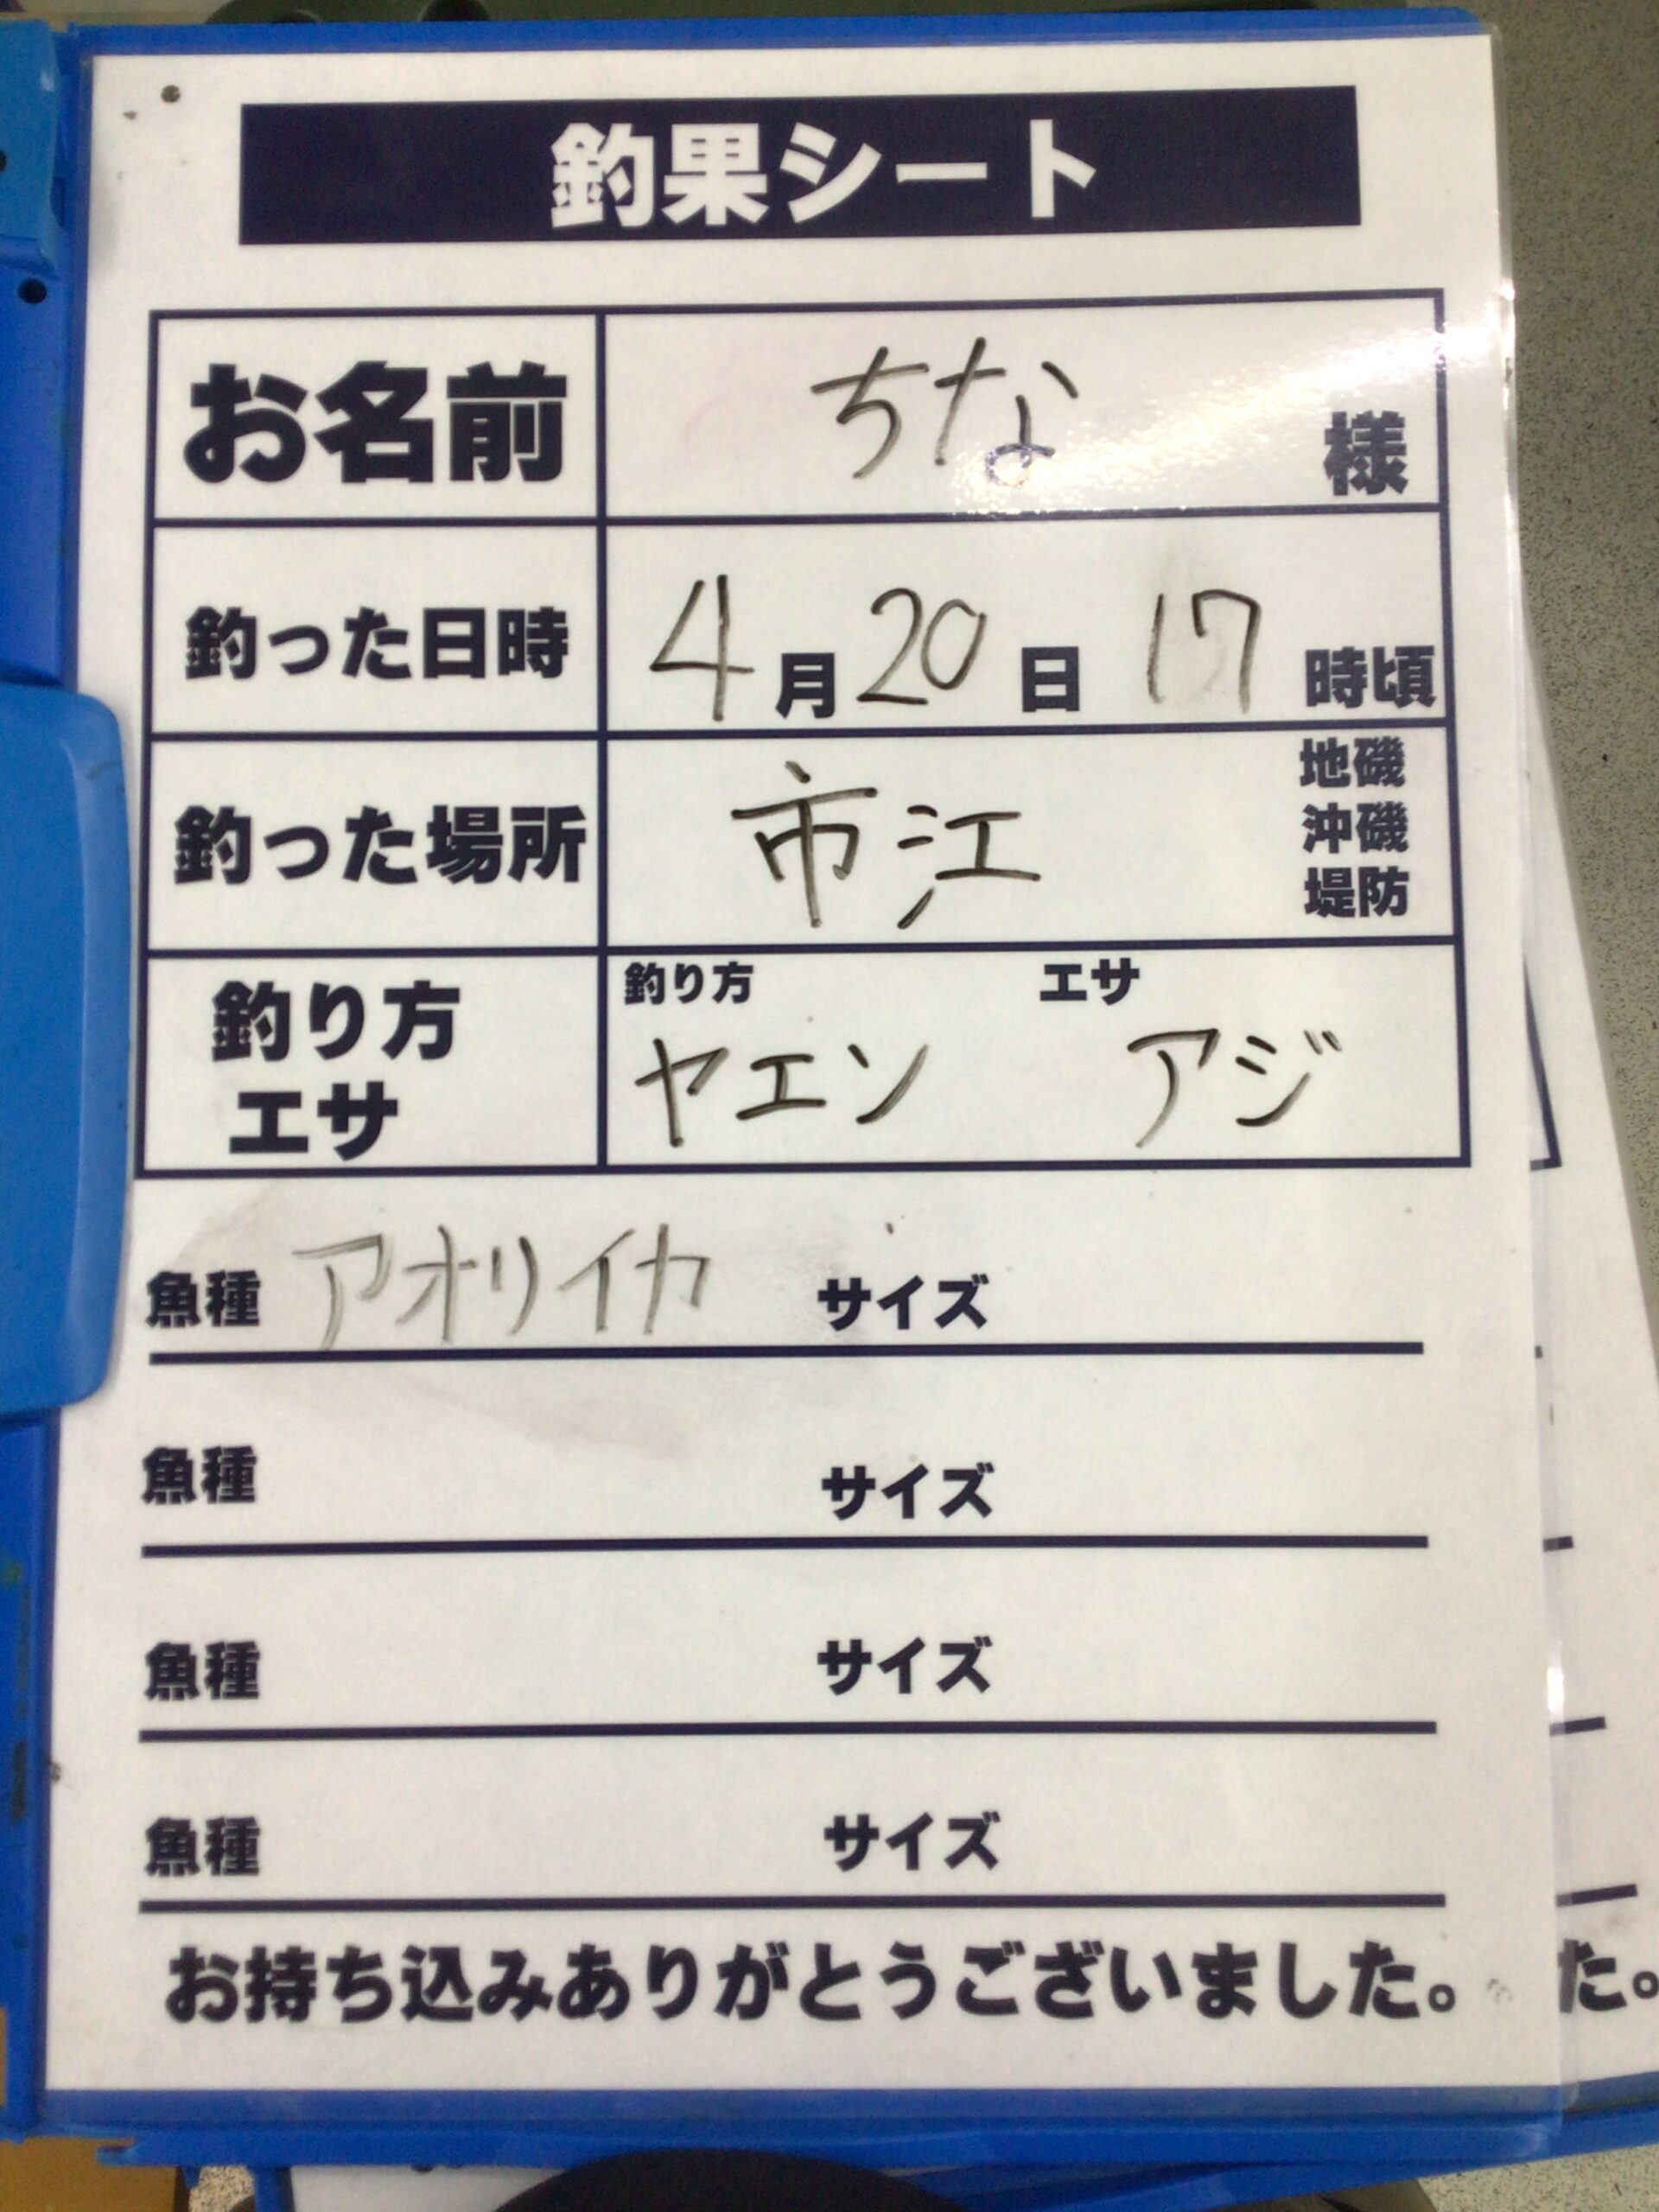 釣果シート
お名前 ちな 様
釣った日時 4月20日 17時頃
釣った場所 市江 地磯 沖磯 堤防
釣り方 エサ 釣り方 ヤエン エサ アジ
魚種 アオリイカ サイズ
魚種 サイズ
魚種 サイズ
魚種 サイズ
お持ち込みありがとうございました。
た。